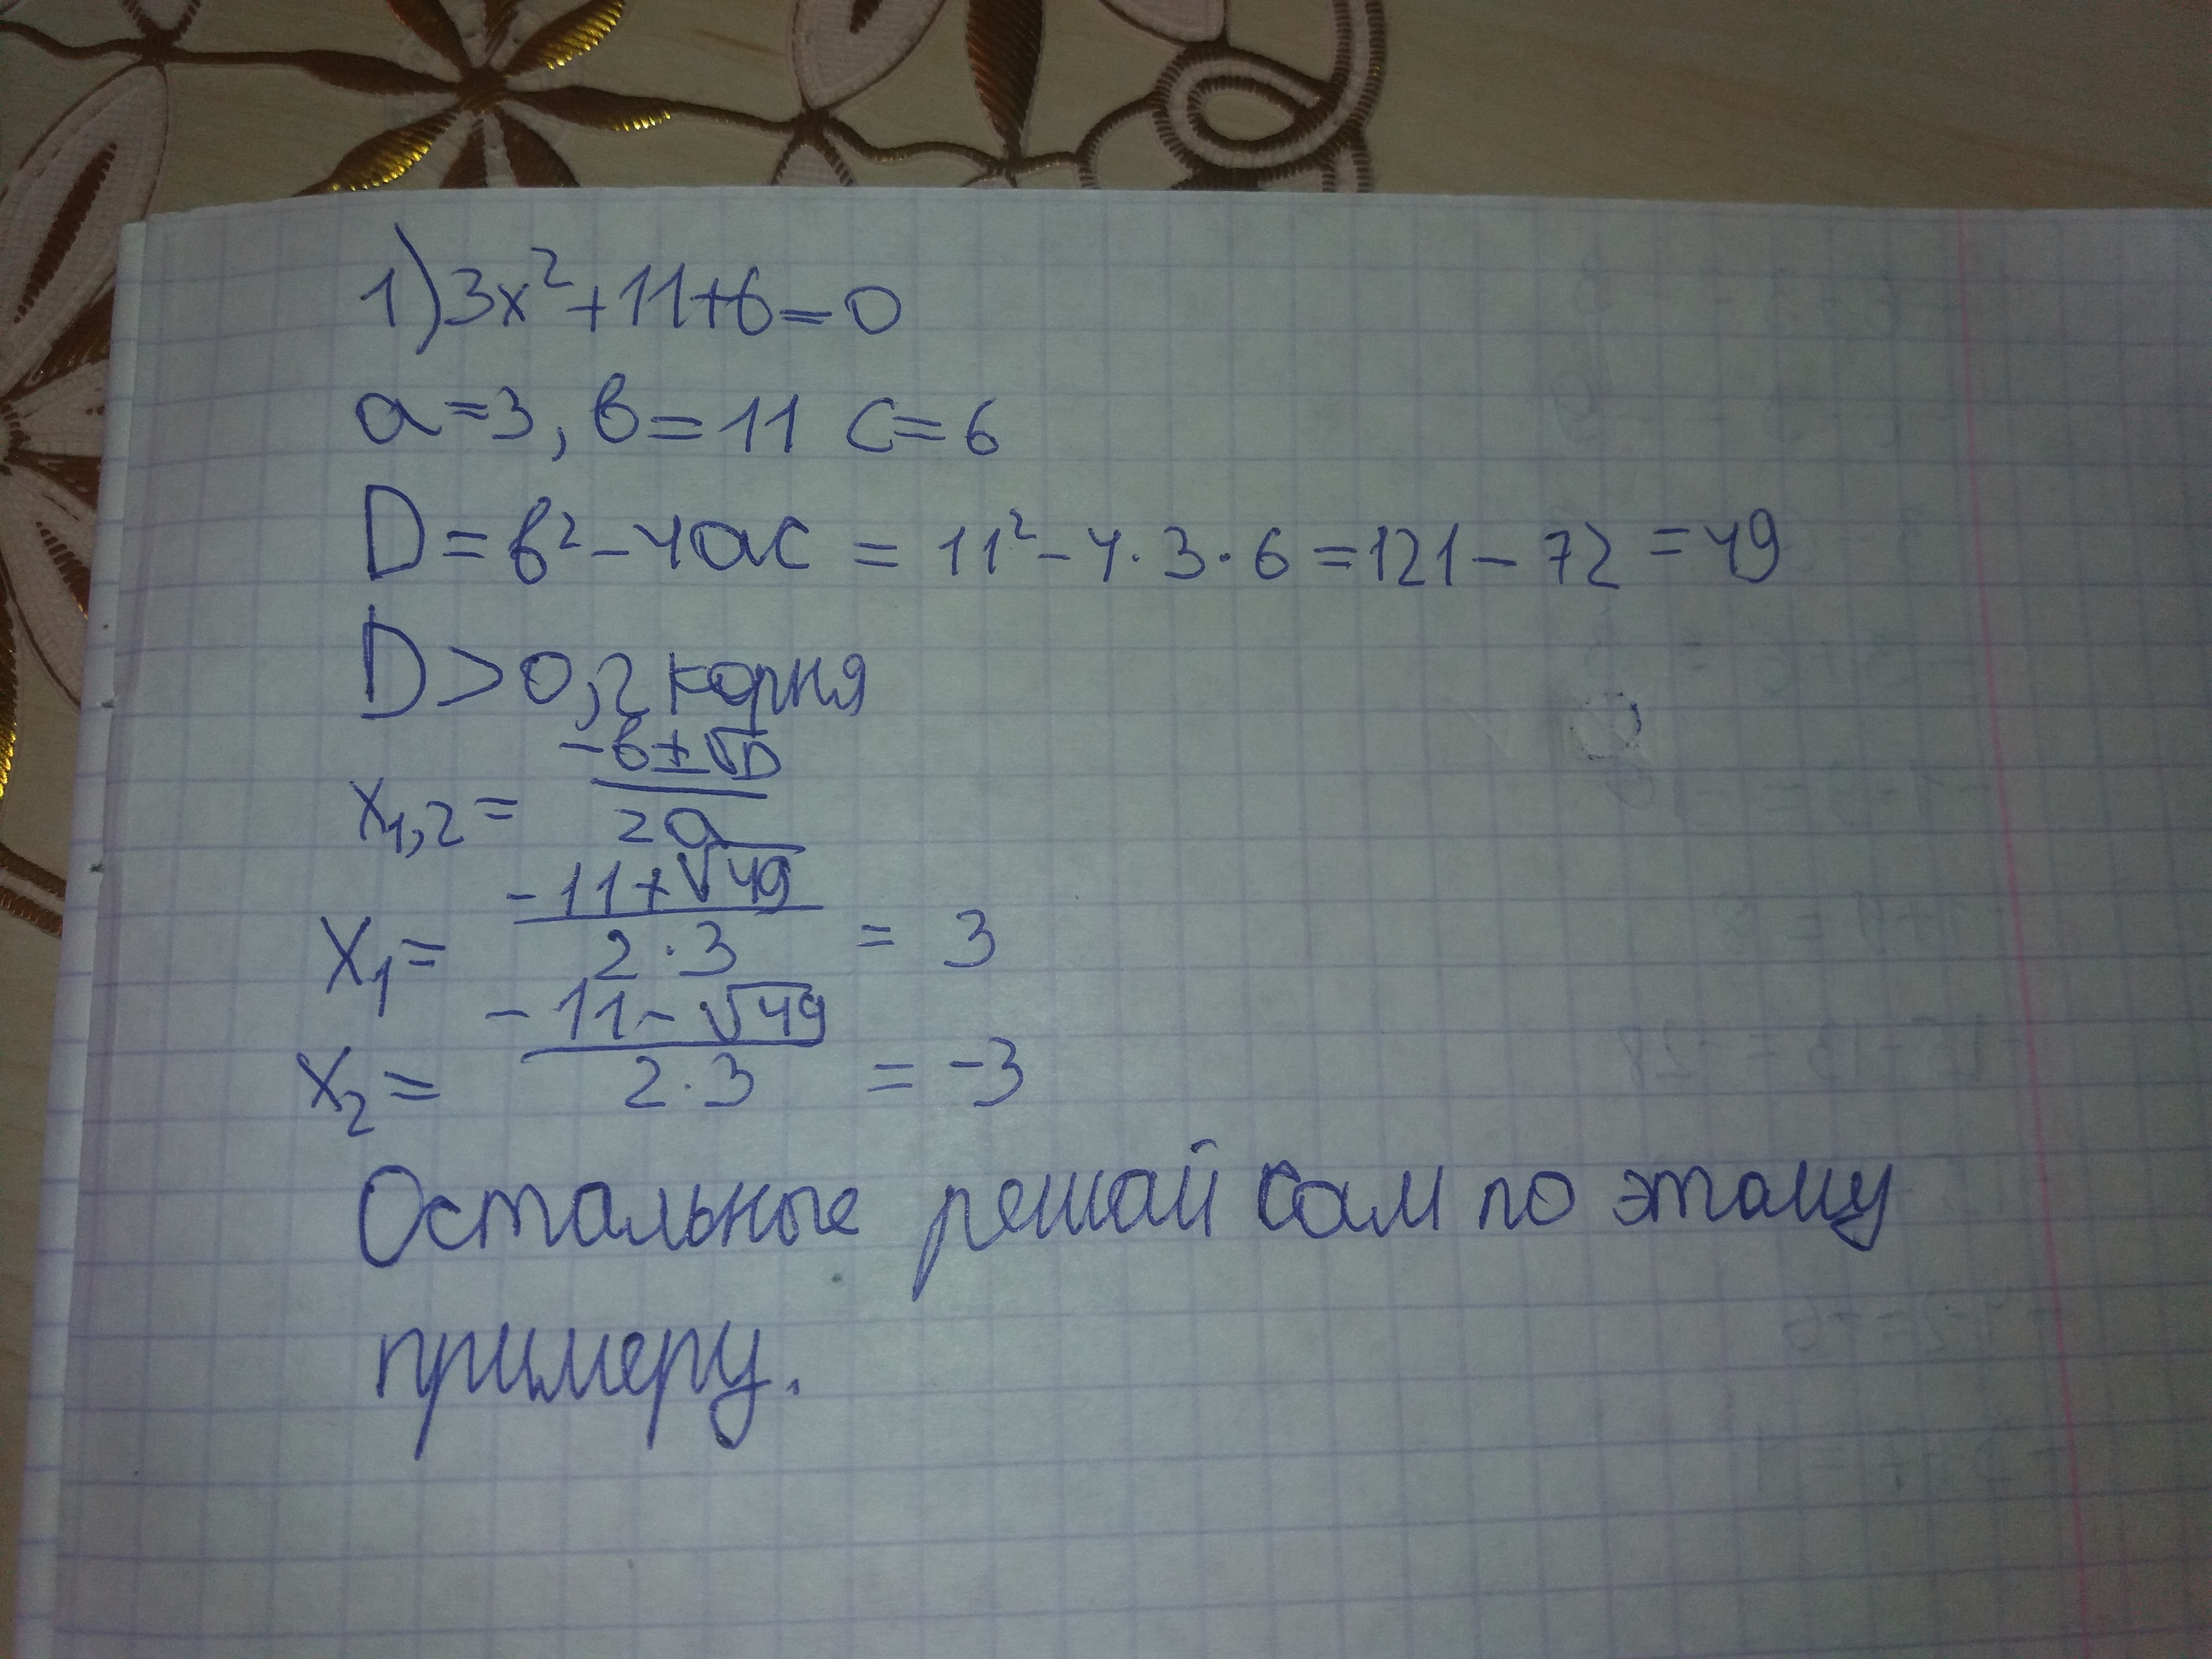 1) 3x² + 11 + 6 = 0
a = 3, в = 11 c = 6
D = в² - 4ac = 11² - 4 · 3 · 6 = 121 - 72 = 49
D > 0, 2 корня
x₁,₂ = (-в ± √D) / 2a
x₁ = (-11 + √49) / 2 · 3 = 3
x₂ = (-11 - √49) / 2 · 3 = -3
Остальные решай сам по этому
примеру.